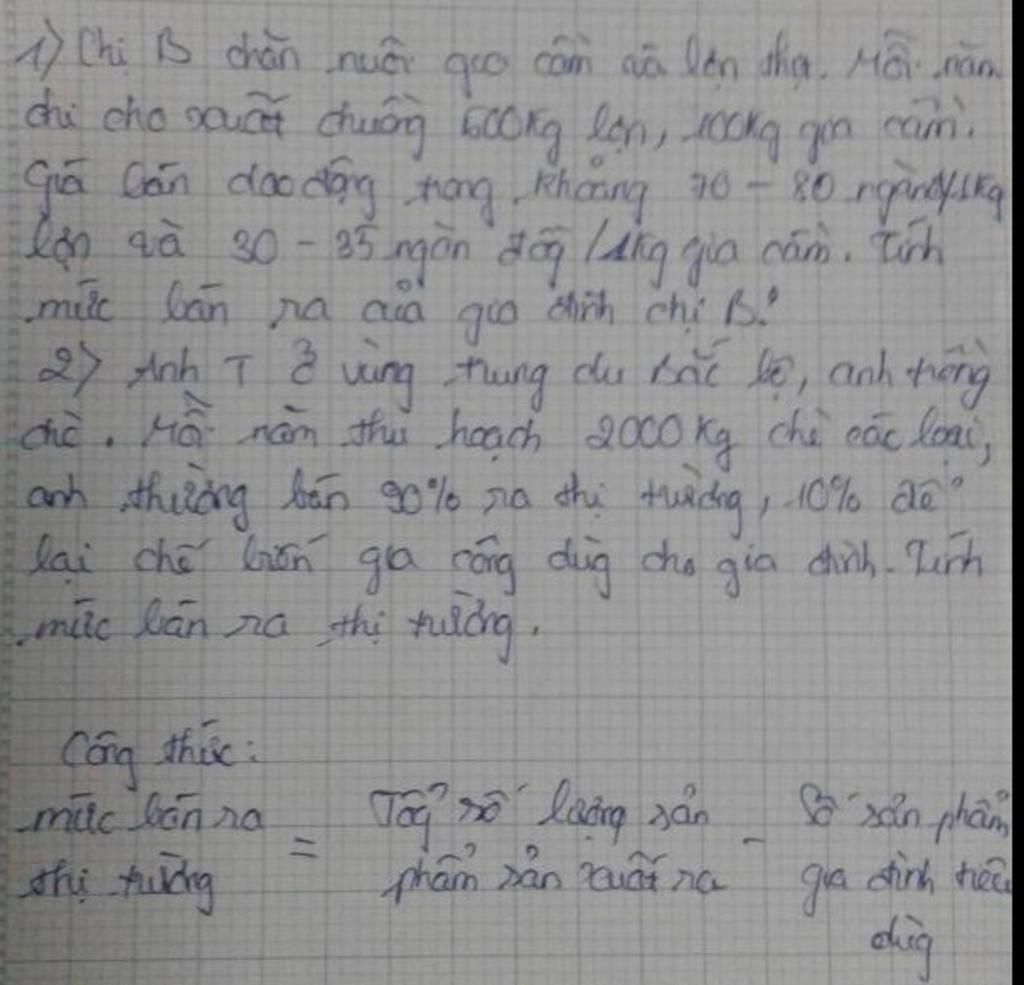 1) Chị B chăn nuôi gia cầm và lợn thịt. Mỗi năm
chị cho xuất chuồng 600kg lợn, 100kg gia cầm.
Giá bán dao động trong khoảng 70 - 80 ngàn/1kg
lợn và 30 - 35 ngàn đồg /1kg gia cầm. Tính
mức bán ra của gia đình chị B?
2) Anh T ở vùng trung du bắc bộ, anh trồng
chè. Mỗi năm thu hoạch 2000kg chè các loại,
anh thường bán 90% ra thị trường, 10% để
lại chế biến gia công dùg cho gia đình. Tính
mức bán ra thị trường.
Công thức:
mức bán ra = Tổg số lượng sản - Số sản phẩm
thị trường phẩm sản xuất ra gia đình tiêu
dùg